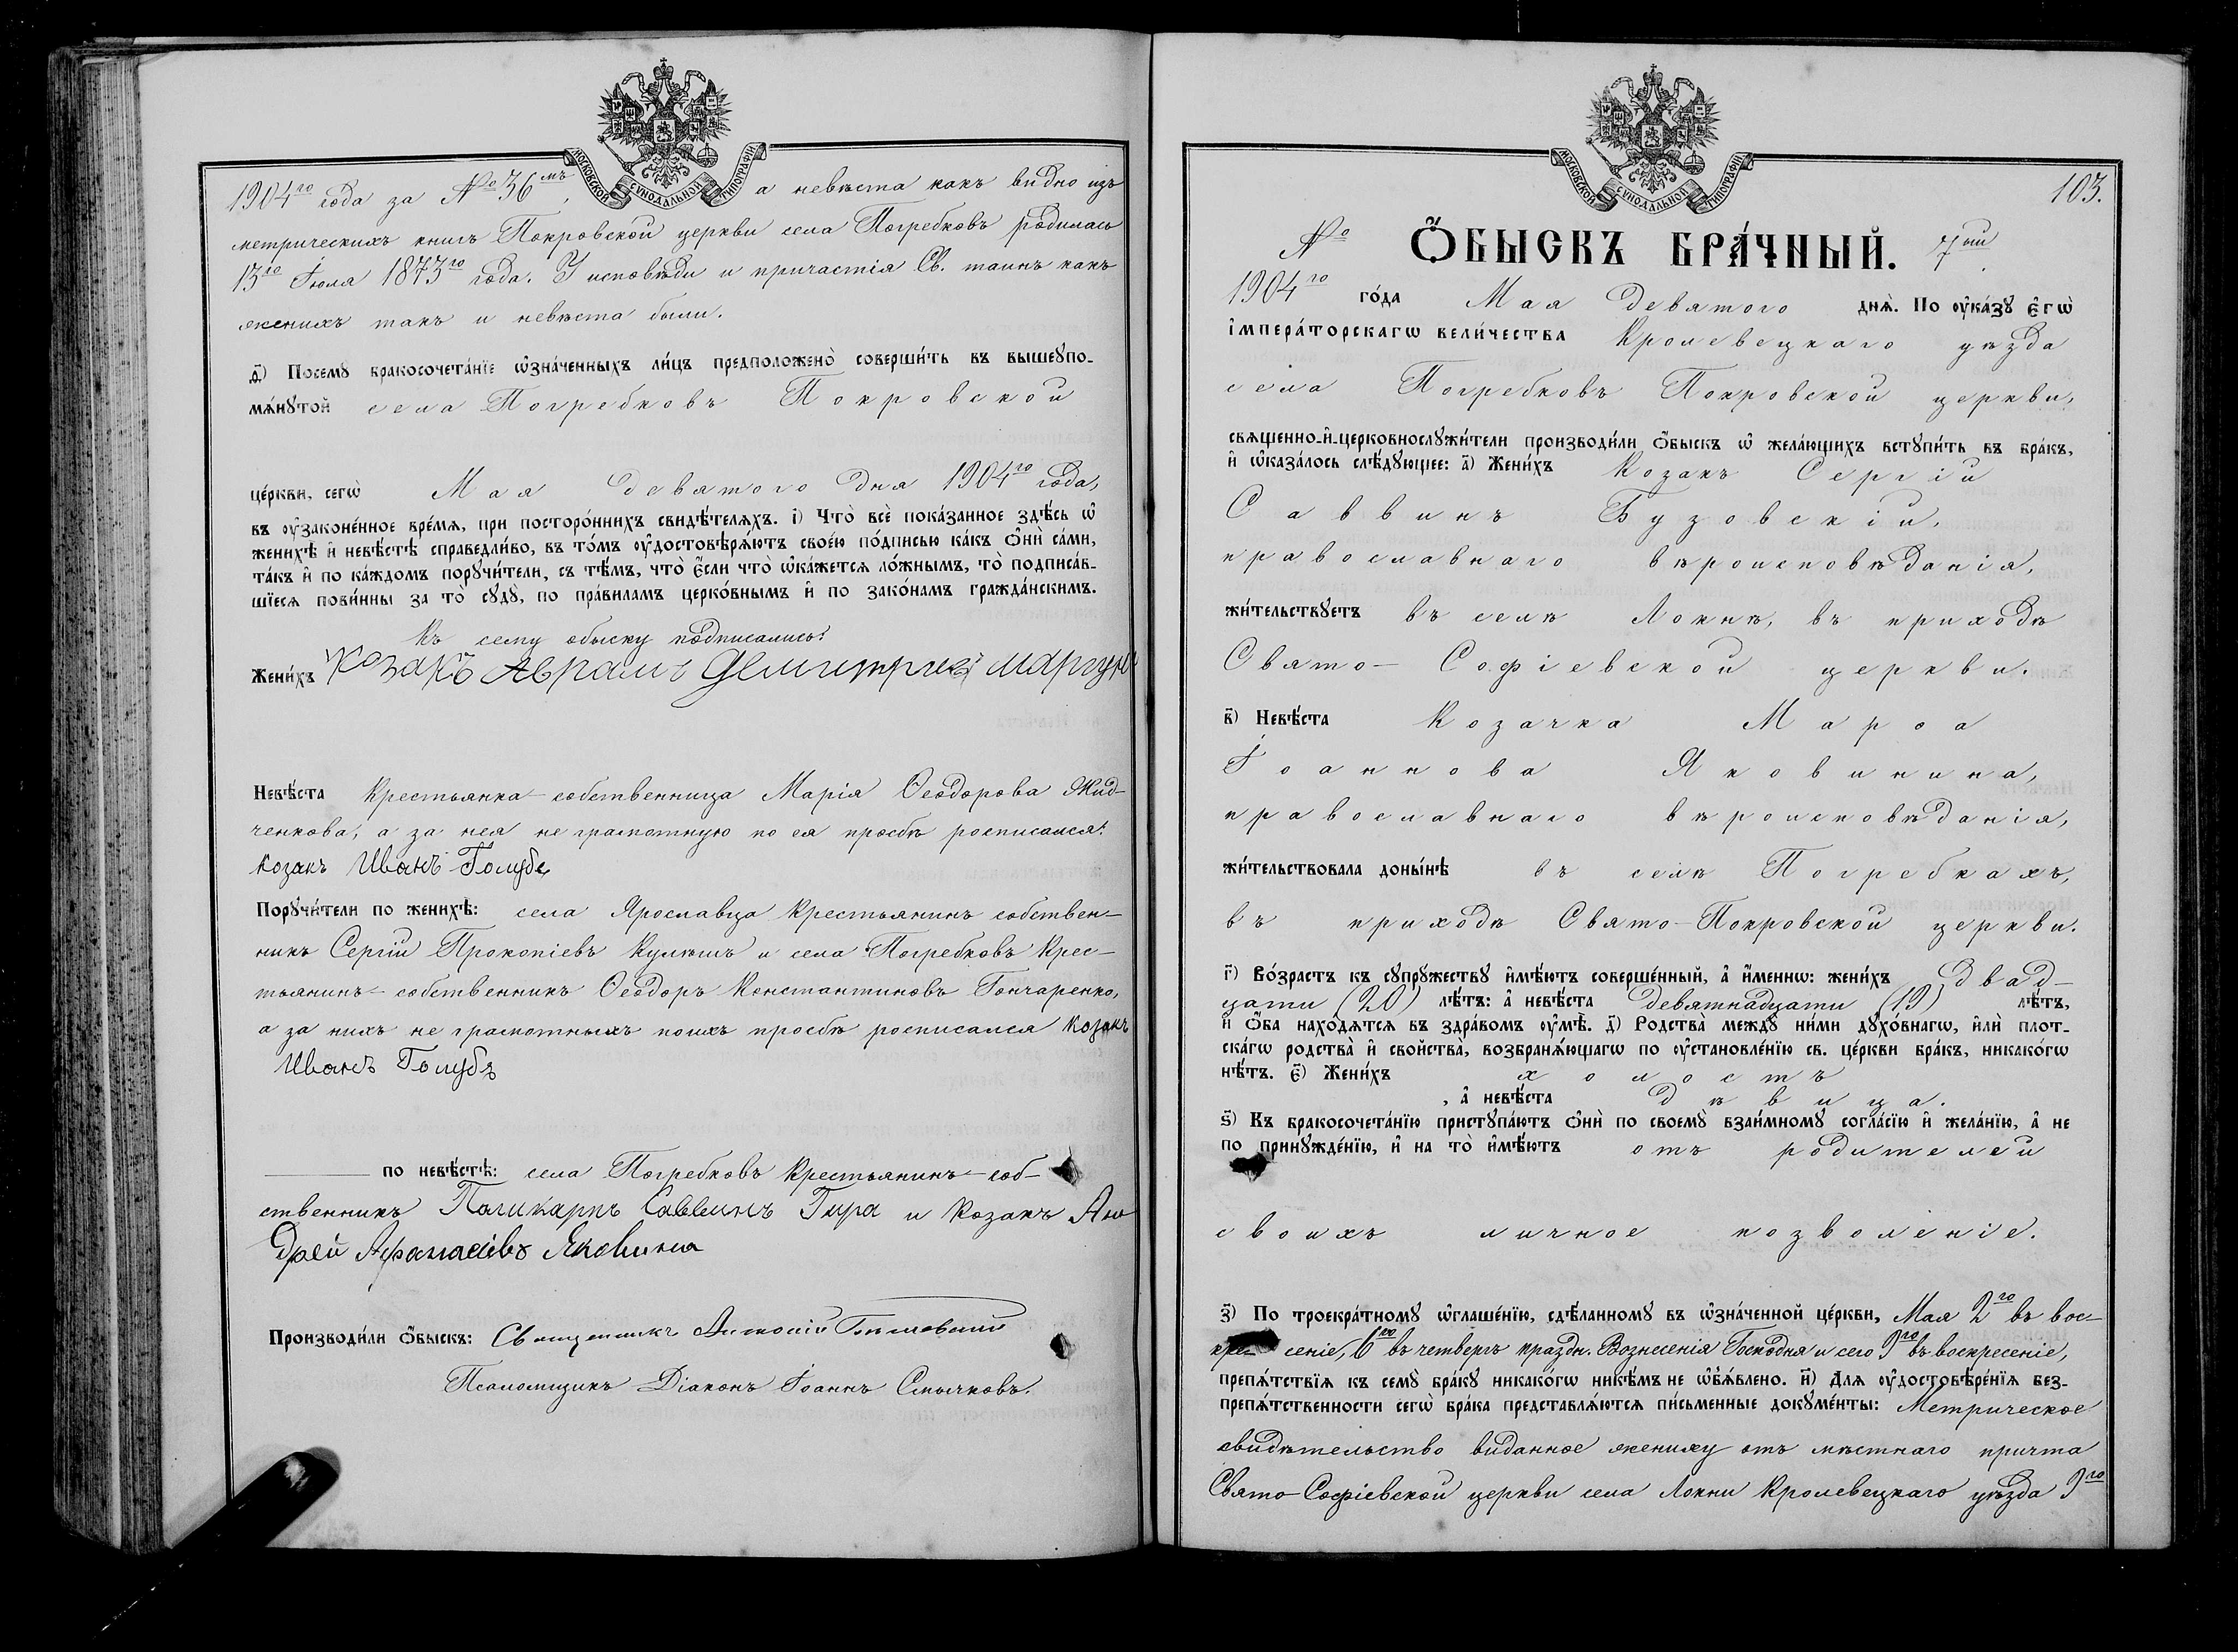 МОСКОВСКОЙ СѴНОДАЛЬНОЙ ТИПОГРАФІИ
1904го года за № 36мъ, а невѣста какъ видно изъ
метрическихъ книгъ Покровской церкви села Погребковъ родилась
13го Іюля 1873го года. У исповѣди и причастія Св. таинъ какъ
женихъ такъ и невѣста были.
д҃) Посемꙋ бракосочета́нїе ѡ҆зна́ченныхъ ли́цъ предположено̀ соверши́ть въ вышеꙋпо-
мѧ́нꙋтой села Погребковъ Покровской
це́ркви, сегѡ̀ Мая девятого дня 1904го года,
въ ᲂу҆законе́нное вре́мѧ, при посторо́ннихъ свидѣ́телѧхъ. і҃) Что̀ всѐ пока́занное здѣ́сь ѡ҆
женихѣ̀ и҆ невѣ́стѣ справедли́во, въ то́мъ ᲂу҆достовѣрѧ́ютъ свое́ю по́дписью ка́къ ѻ҆нѝ са́ми,
та́къ и҆ по ка́ждомъ порꙋчи́тели, съ тѣ́мъ, что̀ є҆́сли что̀ ѡ҆ка́жетсѧ ло́жнымъ, то̀ подписа́в-
шїесѧ пови́нны за то̀ сꙋдꙋ̀, по пра́виламъ церко́внымъ и҆ по зако́намъ гражда́нскимъ.
Къ сему обыску подписались:
Жени́хъ козакъ Аврамъ Демитриев Маргун
Невѣ́ста Крестьянка-собственница Марія Ѳеодорова Жид-
ченкова, а за нея не грамотную по ея просбѣ росписался:
козакъ Иванъ Голубъ
Порꙋчи́тели по женихѣ̀: села Ярославца крестьянинъ собствен-
никъ Сергій Прокопіевъ Кулешъ и села Погребковъ крес-
тьянинъ-собственникъ Ѳеодоръ Константиновъ Гончаренко,
а за нихъ не грамотныхъ поихъ просбѣ росписался козакъ
Иванъ Голубъ
по невѣ́стѣ: села Погребковъ крестьянинъ-соб-
ственникъ Поликарпъ Саввинъ Гира и козакъ Ан
дрей Афанасіевъ Яковина
Производи́ли ѻ҆́быскъ: Священникъ Антоній
Псаломщикъ Діаконъ Іоаннъ Смычковъ.
МОСКОВСКОЙ СѴНОДАЛЬНОЙ ТИПОГРАФІИ
103.
№ Ѻ҆́БЫСКЪ БРА́ЧНЫЙ. 7ый.
1904го го́да Мая девятого днѧ̀. По ᲂу҆ка́зꙋ є҆гѡ̀
і҆мпера́торскагѡ вели́чества Кролевецкаго уѣзда
села Погребковъ Покровской церкви,
свѧщенно-и҆-церковнослꙋжи́тели производи́ли ѻ҆́быскъ ѡ҆ жела́ющихъ встꙋпи́ть въ бра́къ,
и҆ ѡ҆каза́лось слѣ́дꙋющее: а҃) Жени́хъ Козакъ Сергій
Саввинъ Бузовскій,
православнаго вѣроисповѣданія,
жи́тельствꙋетъ въ селѣ Локнѣ, въ приходѣ
Свято-Софіевской церкви.
в҃) Невѣ́ста Козачка Марѳа
Іоаннова Яковинина,
православнаго вѣроисповѣданія,
жи́тельствовала доны́нѣ въ селѣ Погребкахъ,
въ приходѣ Свято-Покровской церкви.
г҃) Во́зрастъ къ сꙋпрꙋ́жествꙋ и҆мѣ́ютъ соверше́нный, а҆ и҆́меннѡ: жени́хъ двад-
цати (20) лѣ́тъ: а҆ невѣ́ста девятнадцати (19) лѣ́тъ,
и҆ ѻ҆́ба нахо́дѧтсѧ въ здра́вомъ ᲂу҆мѣ̀. д҃) Родства̀ междꙋ̀ ни́ми дꙋхо́внагѡ, и҆лѝ плот-
ска́гѡ родства̀ и҆ свойства̀, возбранѧ́ющагѡ по ᲂу҆становле́нїю св. це́ркви бра́къ, никако́гѡ
нѣ́тъ. є҃) Жени́хъ холостъ
, а҆ невѣ́ста дѣвица.
ѕ҃) Къ бракосочета́нїю пристꙋпа́ютъ ѻ҆нѝ по своемꙋ̀ взаи́мномꙋ согла́сїю и҆ жела́нїю, а҆ не
по принꙋжде́нїю, и҆ на то̀ и҆мѣ́ютъ отъ родителей
своихъ личное позволеніе.
з҃) По троекра́тномꙋ ѡ҆глаше́нїю, сдѣ́ланномꙋ въ ѡ҆зна́ченной це́ркви, Мая 2го въ вос-
кре- сеніе, 6го въ четвергъ праздн. Вознесенія Господня и сего 9го въ воскресеніе,
препѧ́тствїѧ къ семꙋ̀ бра́кꙋ никако́гѡ никѣ́мъ не ѡ҆б̾ѧ́влено. и҃) Длѧ ᲂу҆достовѣре́нїѧ без-
препѧ́тственности сегѡ̀ бра́ка представлѧ́ютсѧ пи́сьменные докꙋме́нты: Метрическое
свидѣтельство виданное жениху отъ мѣстнаго причта
Свято-Софіевской церкви села Локни Кролевецкаго уѣзда 9го